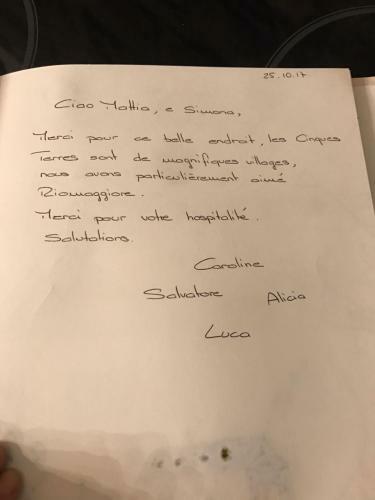 25.10.17
Ciao Mattia, e Simona,
Merci pour ce belle endrait, les Cinques
Terres sont de magnifiques villages,
nous avons particulièrement aimé
Riomaggiore.
Merci pour votre hospitalité.
Salutations.
Caroline
Salvatore Alicia
Luca